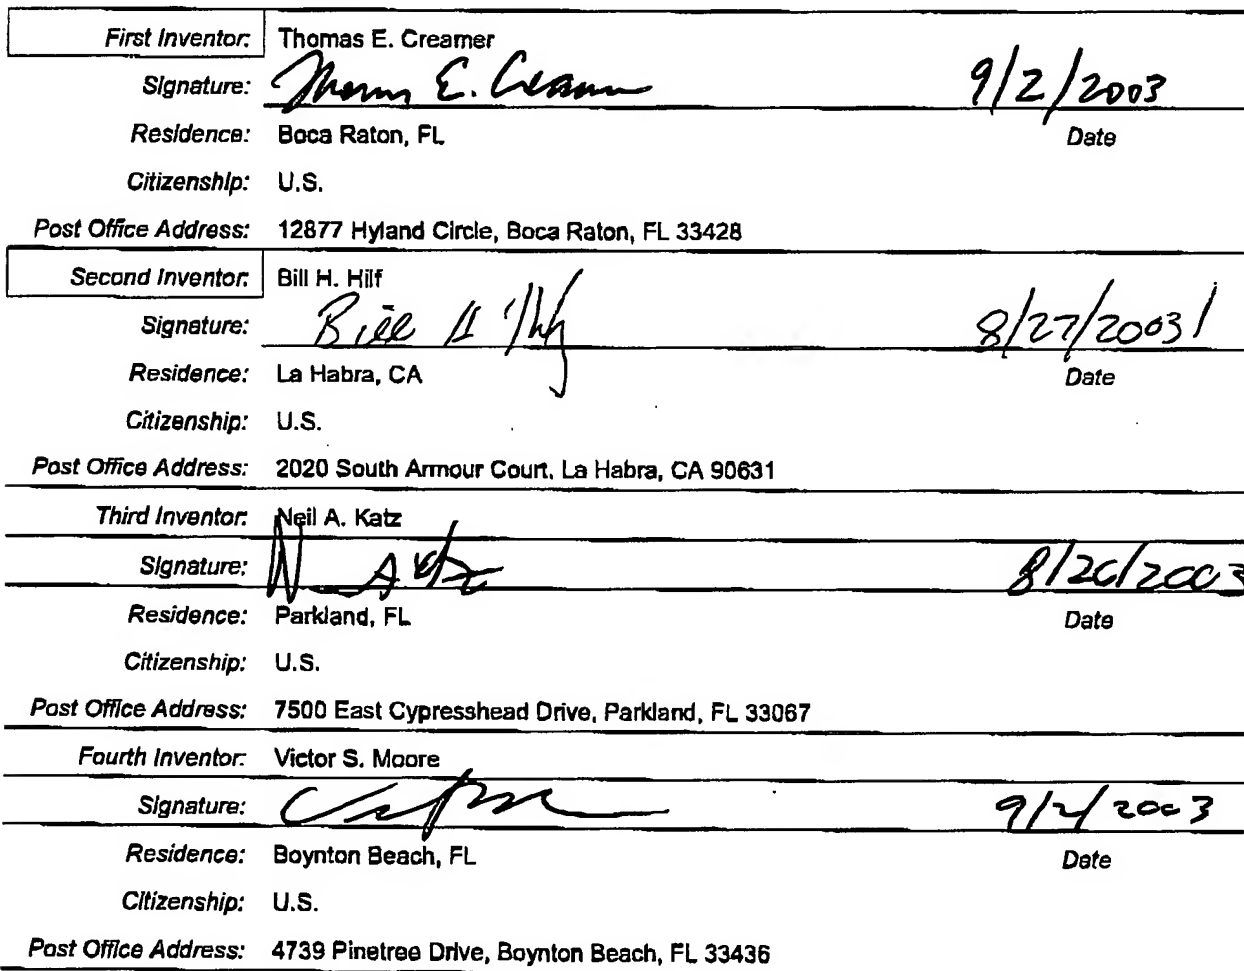 First Inventor: Thomas E. Creamer
Signature: Thomas E. Creamer 9/2/2003
Residence: Boca Raton, FL Date
Citizenship: U.S.
Post Office Address: 12877 Hyland Circle, Boca Raton, FL 33428
Second Inventor: Bill H. Hilf
Signature: Bill H Hilf 8/27/2003
Residence: La Habra, CA Date
Citizenship: U.S.
Post Office Address: 2020 South Armour Court, La Habra, CA 90631
Third Inventor: Neil A. Katz
Signature: N A Katz 8/20/2003
Residence: Parkland, FL Date
Citizenship: U.S.
Post Office Address: 7500 East Cypresshead Drive, Parkland, FL 33067
Fourth Inventor: Victor S. Moore
Signature: 9/2/2003
Residence: Boynton Beach, FL Date
Citizenship: U.S.
Post Office Address: 4739 Pinetree Drive, Boynton Beach, FL 33436